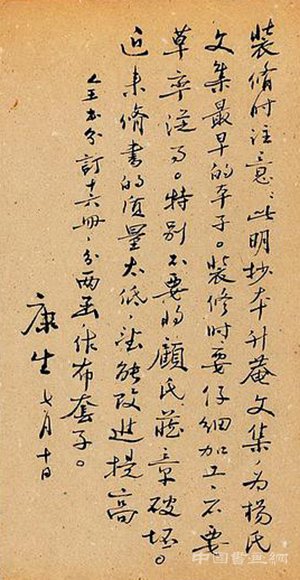 装修时注意：此明抄本升菴文集，为杨氏
文集最早的本子。装修时要仔细加工，不要
草率从事。特别不要将顾氏藏章破坏。
近来修书的质量太低，望能改进提高
全书分订十六册，分两函，作布套子。
康生 七月十日
中国书画网